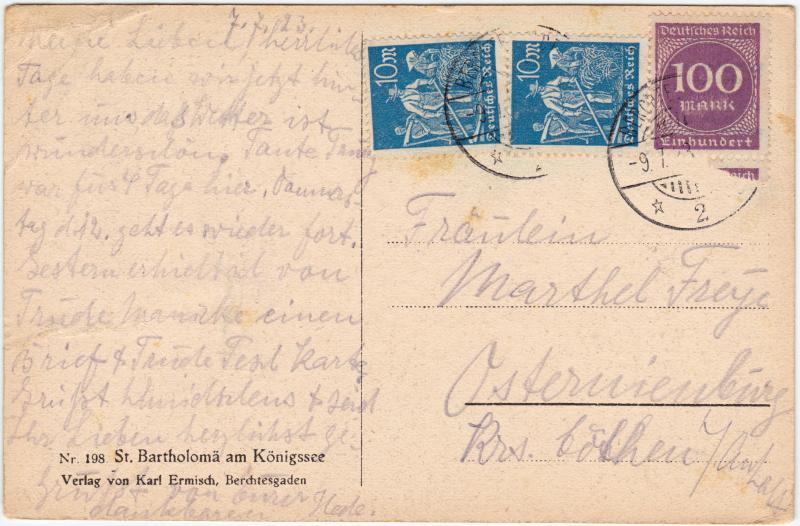 7.7.23.
Meine Lieben! herrliche
Tage haben wir jetzt hin-
ter uns das Wetter ist
wunderschön. Tante
war für 4 Tage hier, Donners-
tag d. 12. geht es wieder fort.
Gestern erhielt ich von
Trude einen
Brief & Trude Karte
Grüßt & seid
Ihr Lieben herzlichst ge-
grüßt von Eurer
dankbaren Hede.
Nr. 198 St. Bartholomä am Königssee
Verlag von Karl Ermisch, Berchtesgaden
10M
Deutsches Reich
10M
Deutsches Reich
Deutsches Reich
100
MARK
Einhundert
eich
-9.7.23
2
Fräulein
Marthel Freye
Osternienburg
Krs. Cöthen i/Anhalt